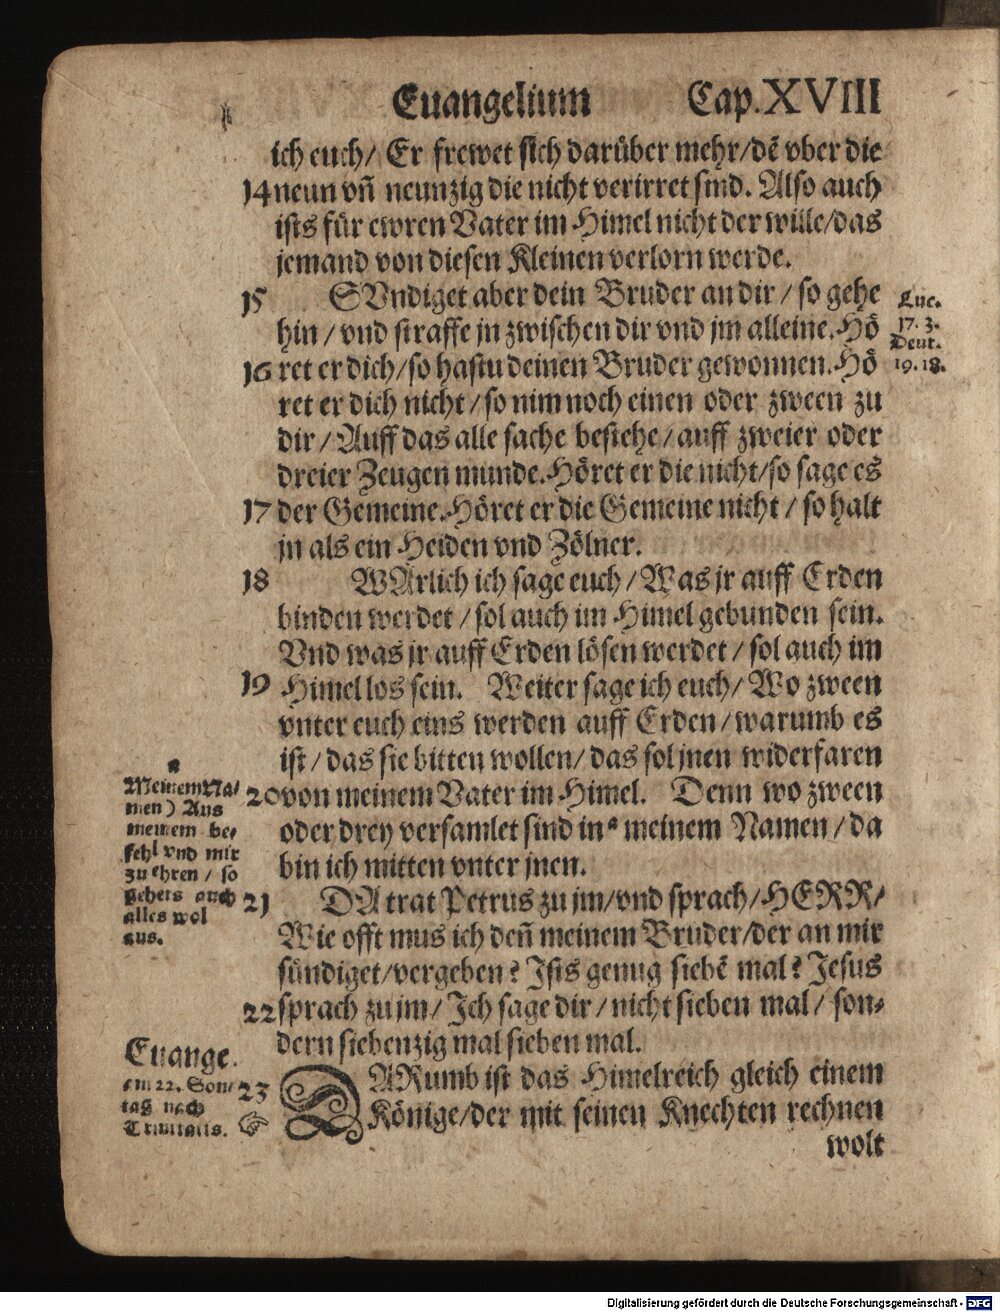 Euangelium Cap. XVIII
ich euch/ Er frewet sich darüber mehr/dē vber die
14 neun vñ neunzig die nicht verirret sind. Also auch
ists für ewren Vater im Himel nicht der wille/das
jemand von diesen Kleinen verlorn werde.
15 SVndiget aber dein Bruder an dir / so gehe
hin / vnd straffe jn zwischen dir vnd jm alleine. Hö
16 ret er dich/so hastu deinen Bruder gewonnen. Hö
ret er dich nicht / so nim noch einen oder zween zu
dir / Auff das alle sache bestehe / auff zweier oder
dreier Zeugen munde. Höret er die nicht/so sage es
17 der Gemeine. Höret er die Gemeine nicht / so halt
jn als ein Heiden vnd Zölner.
Luc.
17. 3.
Deut.
19. 18.
18 WArlich ich sage euch / Was jr auff Erden
binden werdet / sol auch im Himel gebunden sein.
Vnd was jr auff Erden lösen werdet / sol auch im
19 Himel los sein. Weiter sage ich euch/ Wo zween
vnter euch eins werden auff Erden / warumb es
ist / das sie bitten wollen/ das sol jnen widerfaren
20 von meinem Vater im Himel. Denn wo zween
oder drey versamlet sind in * meinem Namen / da
bin ich mitten vnter jnen.
*
Meinem Na/
men) Aus
meinem be-
fehl vnd mir
zu ehren / so
gehets auch
alles wol
aus.
21 DA trat Petrus zu jm/vnd sprach/HERR/
Wie offt mus ich deñ meinem Bruder/der an mir
sündiget/vergeben? Ists genug siebē mal? Jesus
22 sprach zu jm/ Ich sage dir / nicht sieben mal / son-
dern siebenzig mal sieben mal.
Euange.
am 22. Son-
tag nach
Trinitatis.
23 DARumb ist das Himelreich gleich einem
Könige/der mit seinen Knechten rechnen
wolt
Digitalisierung gefördert durch die Deutsche Forschungsgemeinschaft - DFG